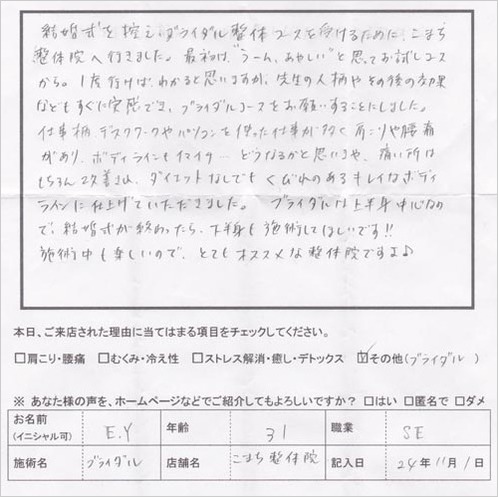 結婚式を控え、ブライダル整体コースを受けるために、こまち
整体院へ行きました。最初は、"うーん、あやしい"と思ってお試しコース
から。1度行けば、わかると思いますが、先生の人柄やその後の効果
などもすぐに実感でき、ブライダルコースをお願いすることにしました。
仕事柄、デスクワークやパソコンを使った仕事が多く肩こりや腰痛
があり、ボディラインもイマイチ… どうなるかと思いきや、痛い所は
もちろん改善され、ダイエットなしでもくびれのあるキレイなボディ
ラインに仕上げていただきました。 ブライダルは上半身中心なの
で、結婚式が終わったら、下半身も施術してほしいです!!
施術中も楽しいので、とてもオススメな整体院ですよ♪
本日、ご来店された理由に当てはまる項目をチェックしてください。
□肩こり・腰痛 □むくみ・冷え性 □ストレス解消・癒し・デトックス ☑その他(ブライダル )
※ あなた様の声を、ホームページなどでご紹介してもよろしいですか? □はい □匿名で □ダメ
お名前 (イニシャル可) E.Y 年齢 31 職業 SE
施術名 ブライダル 店舗名 こまち整体院 記入日 24年11月1日